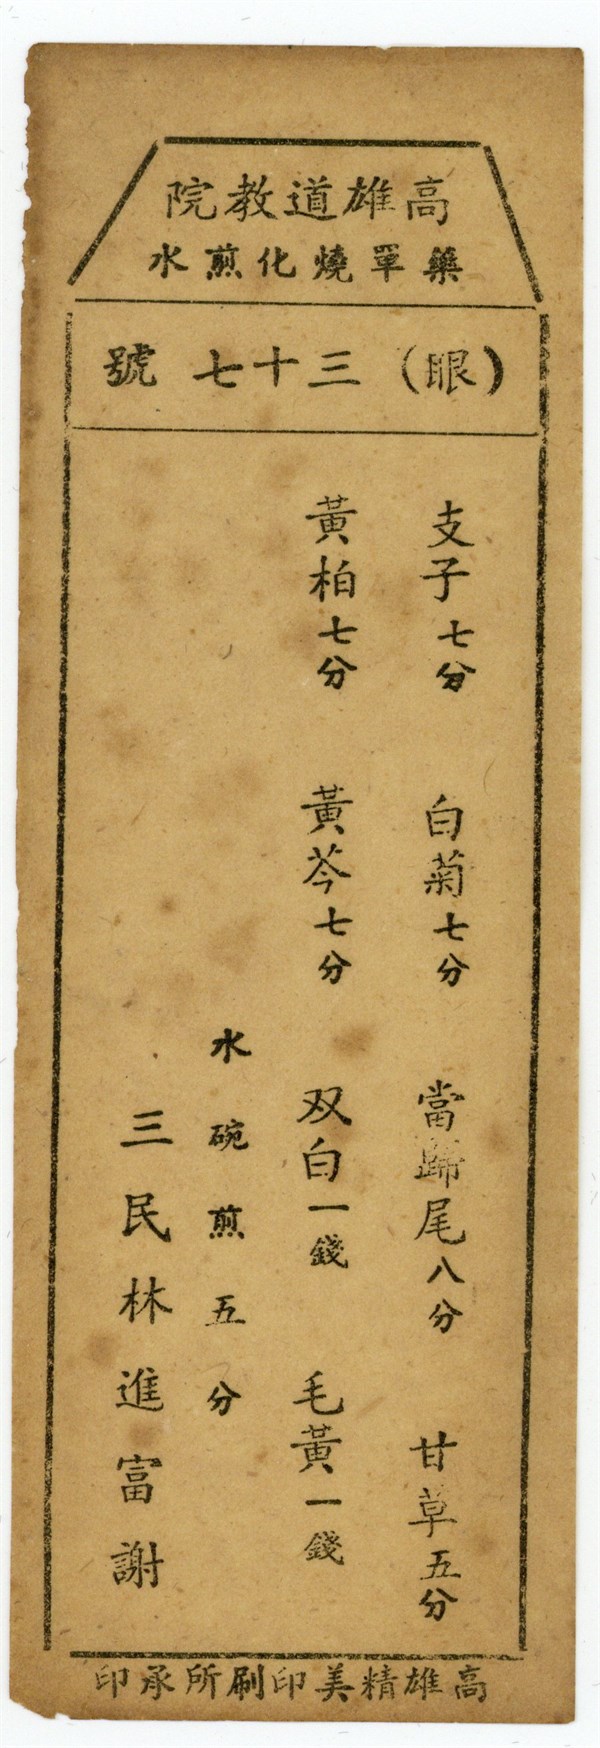 高雄道教院
藥單燒化煎水
（眼）三十七號
支子七分　白菊七分　當歸尾八分　甘草五分
黃柏七分　黃芩七分　双白一錢　毛黃一錢
水碗煎五分
三民林進富謝
高雄精美印刷所承印